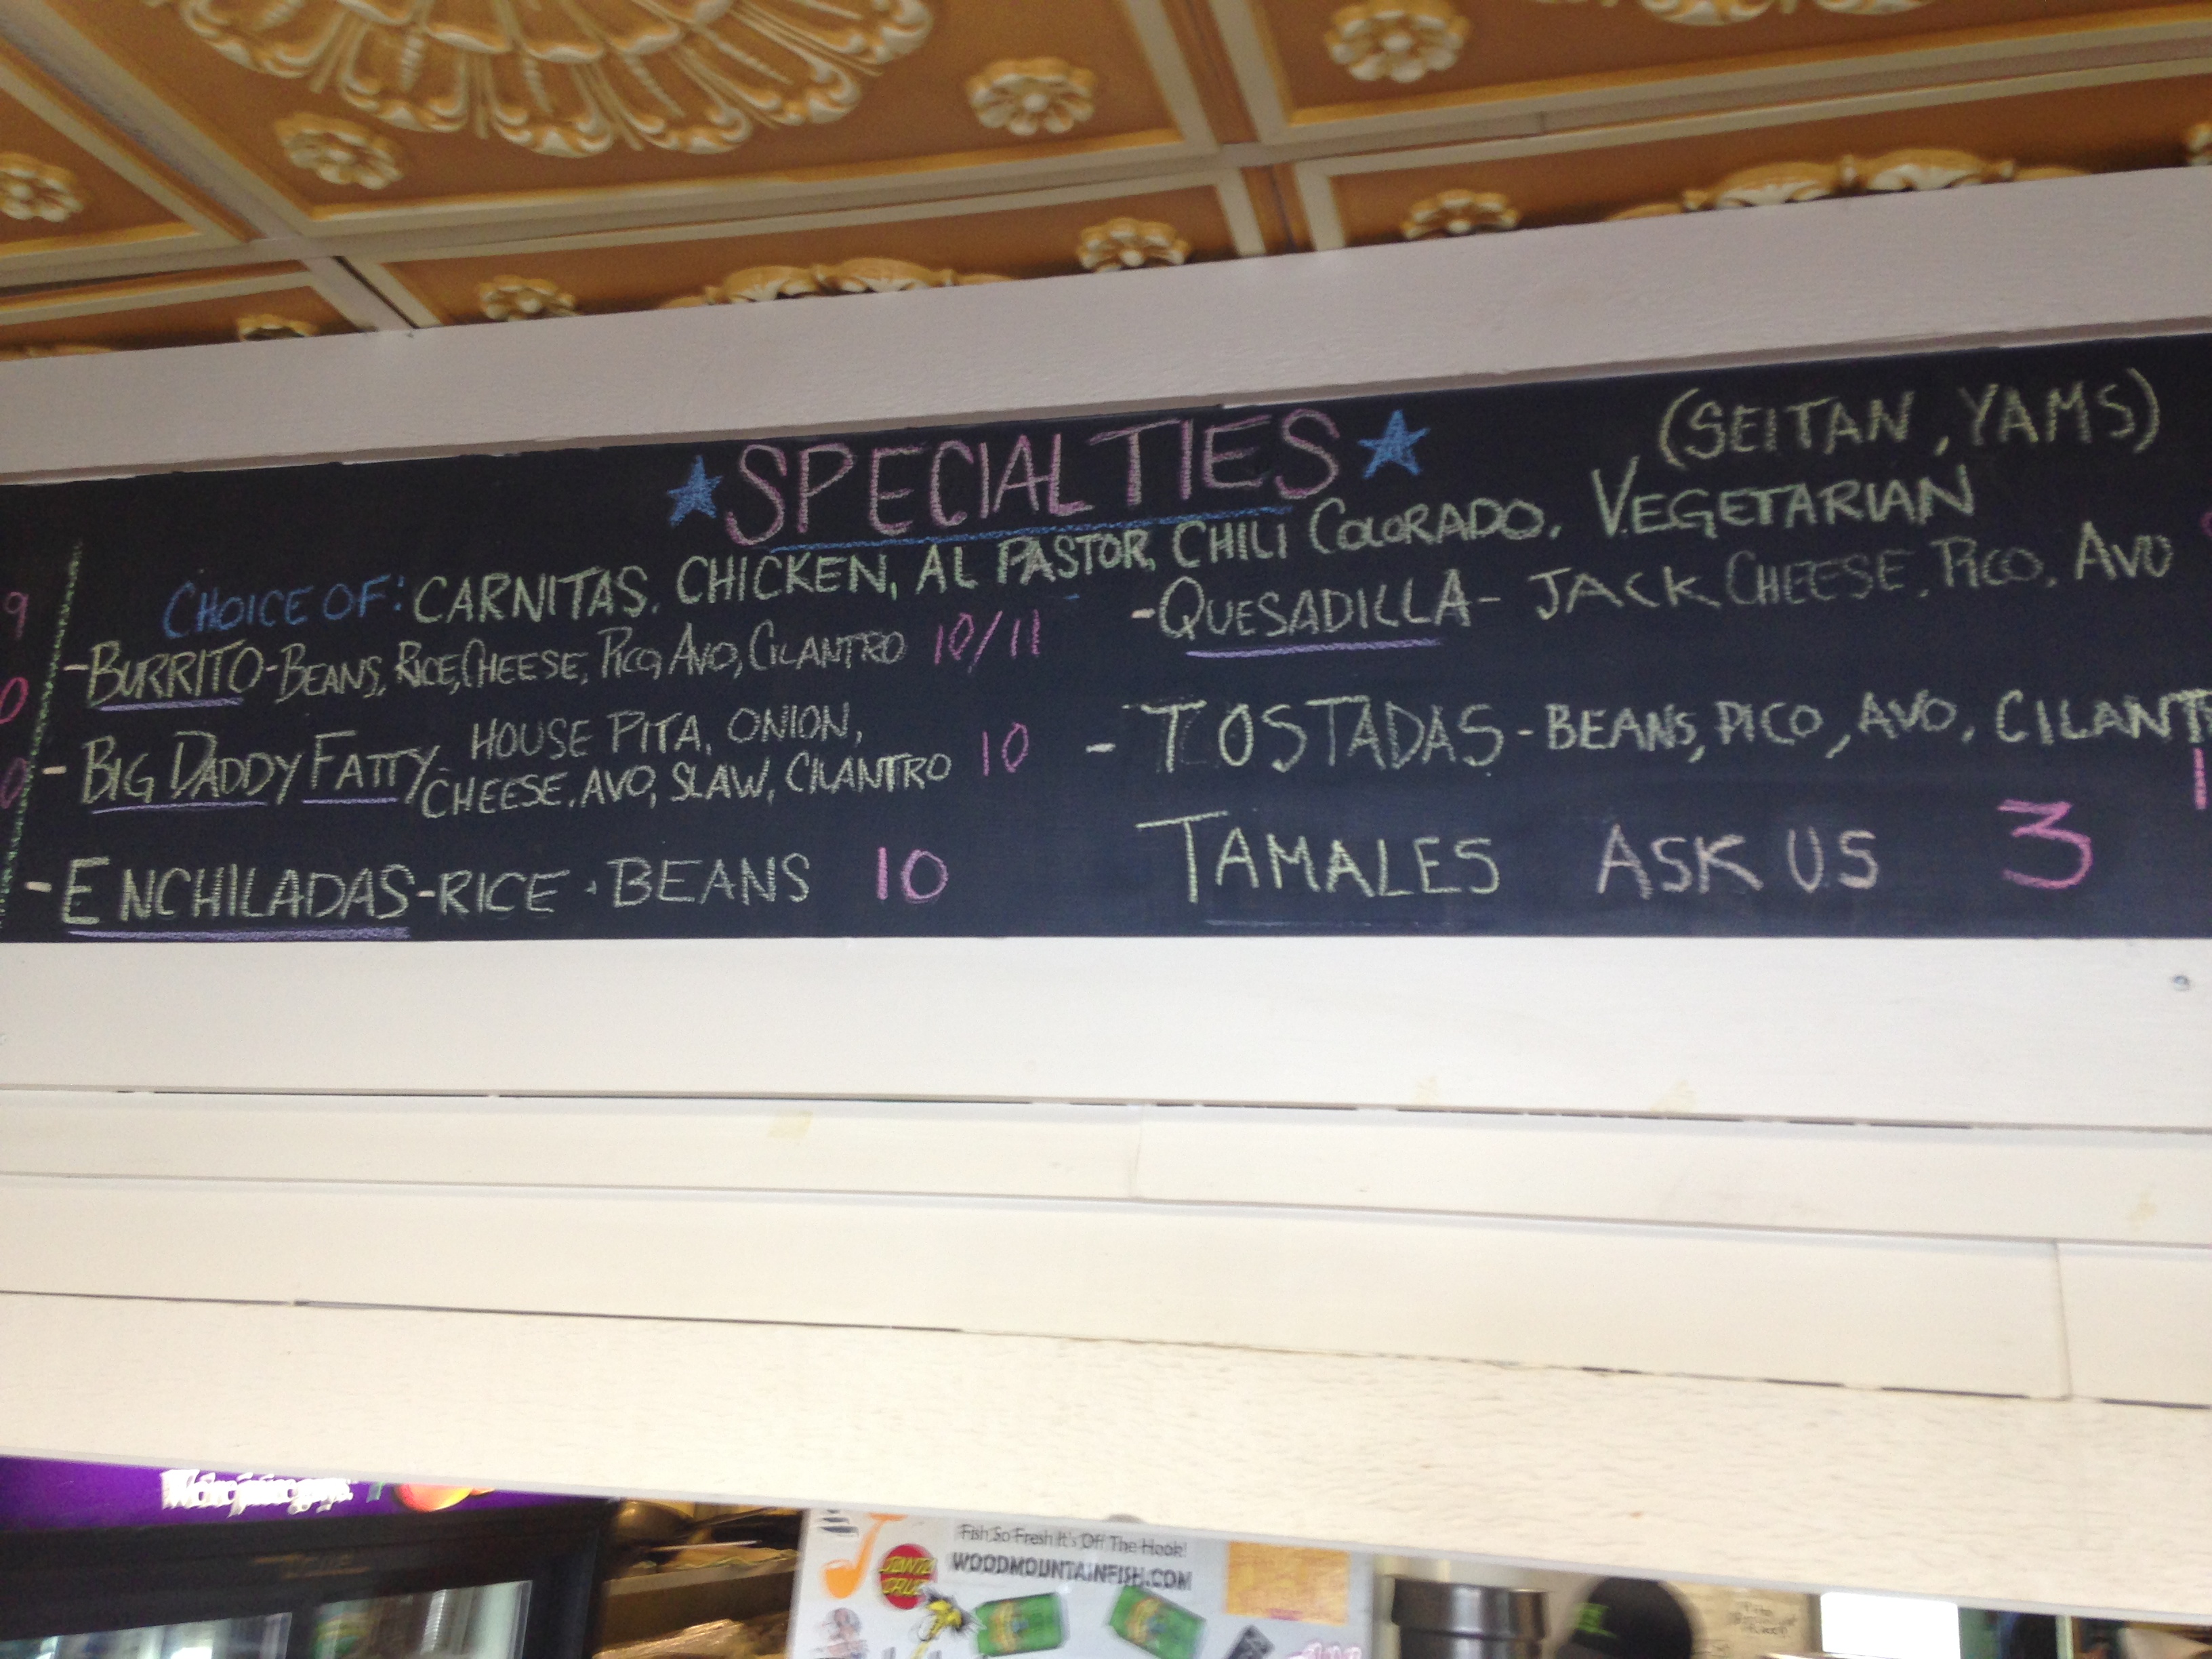 SPECIALTIES
(SEITAN, YAMS)
CHOICE OF: CARNITAS, CHICKEN, AL PASTOR, CHILI COLORADO, VEGETARIAN
-BURRITO-BEANS, RICE, CHEESE, PICO, AVO, CILANTRO 10/11
-BIG DADDY FATTY- HOUSE PITA, ONION,
CHEESE, AVO, SLAW, CILANTRO 10
-ENCHILADAS-RICE · BEANS 10
-QUESADILLA- JACK CHEESE, PICO, AVO
-TOSTADAS-BEANS, PICO, AVO, CILANT
TAMALES ASK US 3
9
0
0
Fish So Fresh It's Off The Hook!
WOODMOUNTAINFISH.COM
SANTA
CRUZ